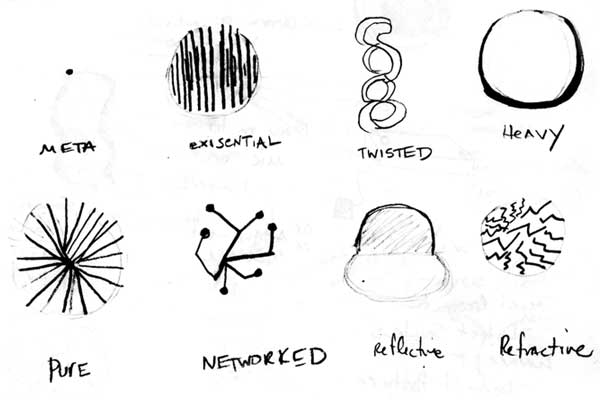 META
exisential
TWISTED
Heavy
Pure
NETWORKED
Reflective
Refractive